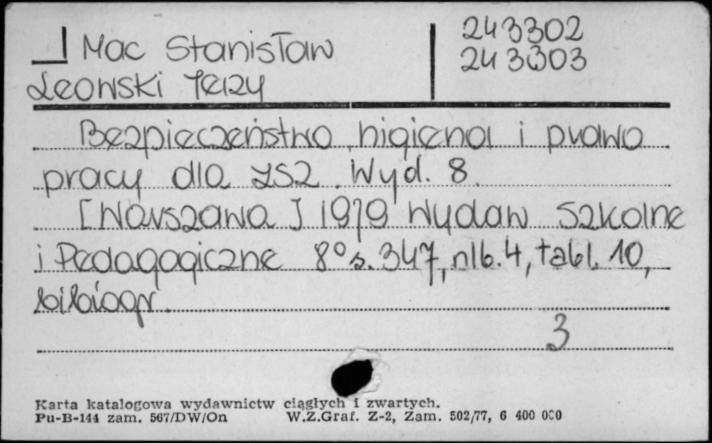 Mac Stanisław
243302
243303
Leonski Jerzy
Bezpieczeństwo, higiena i prawo
pracy dla ZSZ. Wyd. 8.
[Warszawa] 1979 Wydaw Szkolne
i Pedagogiczne 8° s. 347, nlb. 4, tabl. 10,
bibliogr.
3
Karta katalogowa wydawnictw ciągłych i zwartych.
Pu-B-144 zam. 567/DW/On W.Z.Graf. Z-2, Zam. 502/77, 6 400 000